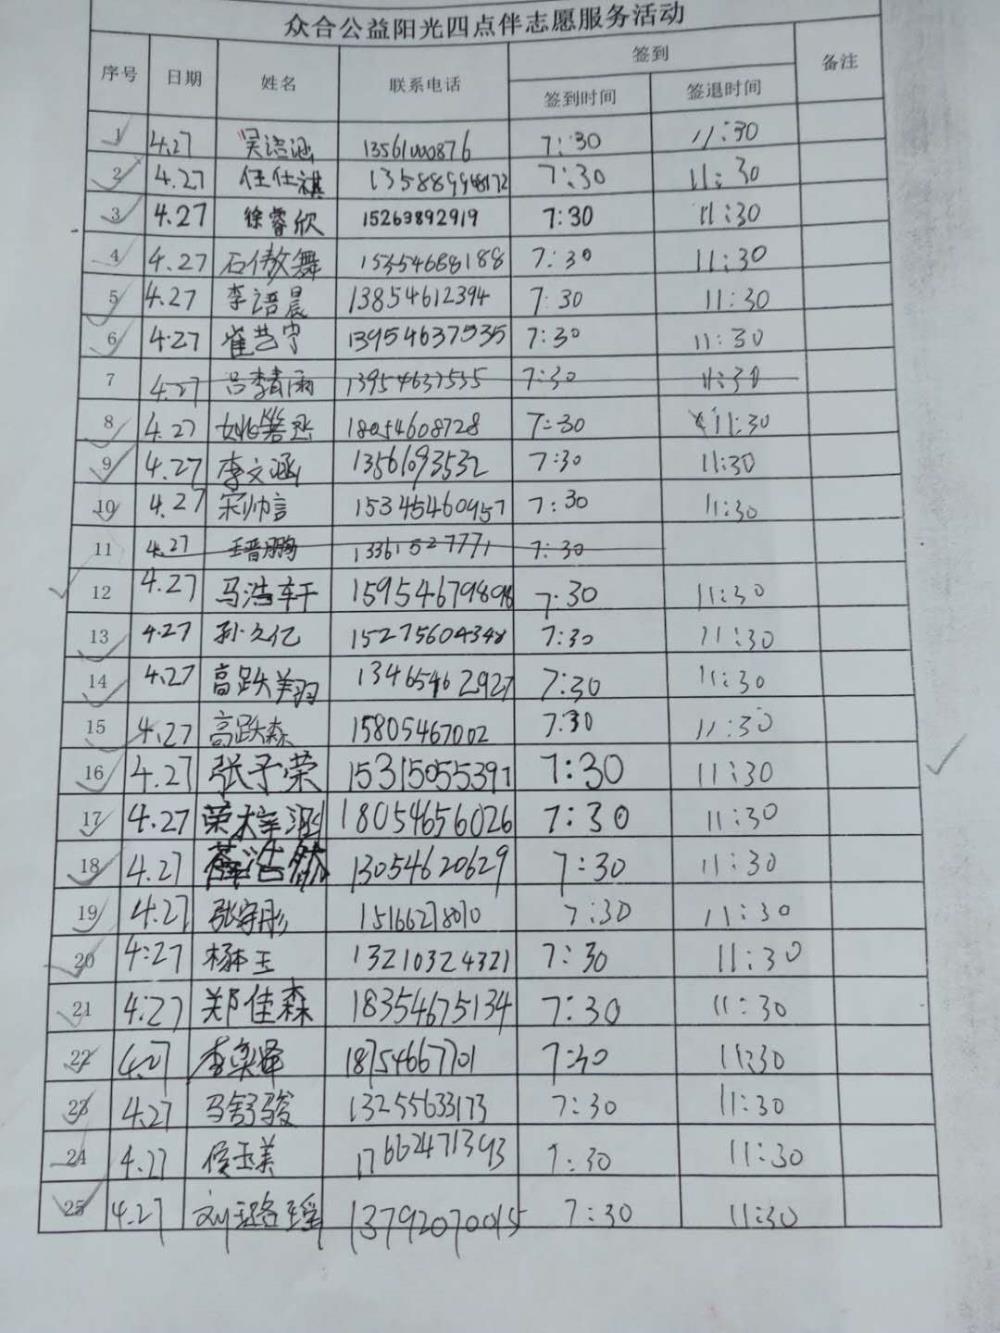 众合公益阳光四点伴志愿服务活动
序号 日期 姓名 联系电话 签到 备注
签到时间 签退时间
1 4.27 吴浩涵 13561000876 7:30 11:30
2 4.27 任仕祺 7:30 11:30
3 4.27 徐睿欣 15263892919 7:30 11:30
4 4.27 石傲舞 15354688188 7:30 11:30
5 4.27 李语晨 13854612394 7:30 11:30
6 4.27 崔艺宁 13954637535 7:30 11:30
7 4.27 吕李青雨 13954637535 7:30 11:30
8 4.27 姚 18054608728 7:30 11:30
9 4.27 李文涵 13561093532 7:30 11:30
10 4.27 宋帅言 15345460957 7:30 11:30
11 4.27 王晋鹏 13361527771 7:30
12 4.27 马浩轩 7:30 11:30
13 4.27 孙久亿 15275604348 7:30 11:30
14 4.27 高跃翔 13465462927 7:30 11:30
15 4.27 高跃森 15805467002 7:30 11:30
16 4.27 张予荣 15315055397 7:30 11:30
17 4.27 荣梓涵 18054656026 7:30 11:30
18 4.27 薛浩然 13054620629 7:30 11:30
19 4.27 张宇彤 15166278010 7:30 11:30
20 4:27 杨玉 13210324321 7:30 11:30
21 4:27 郑佳森 18354675134 7:30 11:30
22 4.27 李奕泽 18754667701 7:30 11:30
23 4.27 马舒骏 13255633173 7:30 11:30
24 4.27 侯玉美 17662471393 7:30 11:30
25 4.27 刘璐瑶 13792070015 7:30 11:30